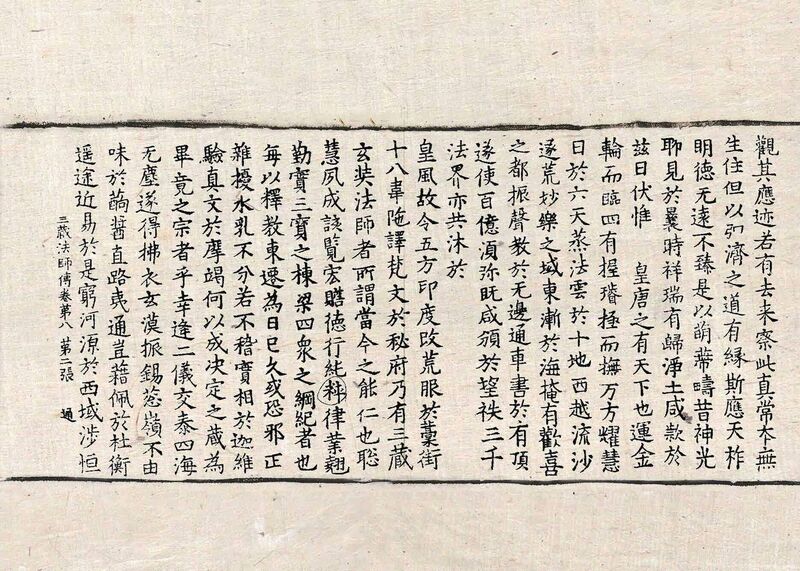 觀其應迹若有去来察此真常本無
生住但以弘濟之道有縁斯應天祚
明德无遠不臻是以萌蔕疇昔神光
聊見於曩時祥瑞有歸淨土咸款於
茲日伏惟 皇唐之有天下也運金
輪而臨四有握璿極而撫万方耀慧
日於六天蒸法雲於十地西越流沙
遂荒妙樂之域東漸於海掩有歡喜
之都振聲教於无邊通車書於有頂
遂使百億湏弥旣咸頒於望袟三千
法界亦共沐於
皇風故令五方印度改荒服於藁街
十八韋陁譯梵文於秘府乃有三藏
玄奘法師者所謂當今之能仁也聡
慧夙成該覧宏贍德行純粹律業翹
勤實三寳之棟梁四衆之綱紀者也
每以釋教東遷為日已久或恐邪正
雜擾水乳不分若不稽實相於迦維
驗真文於摩竭何以成决定之藏為
畢竟之宗者乎幸逢二儀交泰四海
无塵遂得拂衣玄漠振錫葱嶺不由
味於蒟醤直路夷通豈藉佩於杜衡
遥途近易於是窮河源於西域渉恒
三藏法師傳卷第八 第二張 通